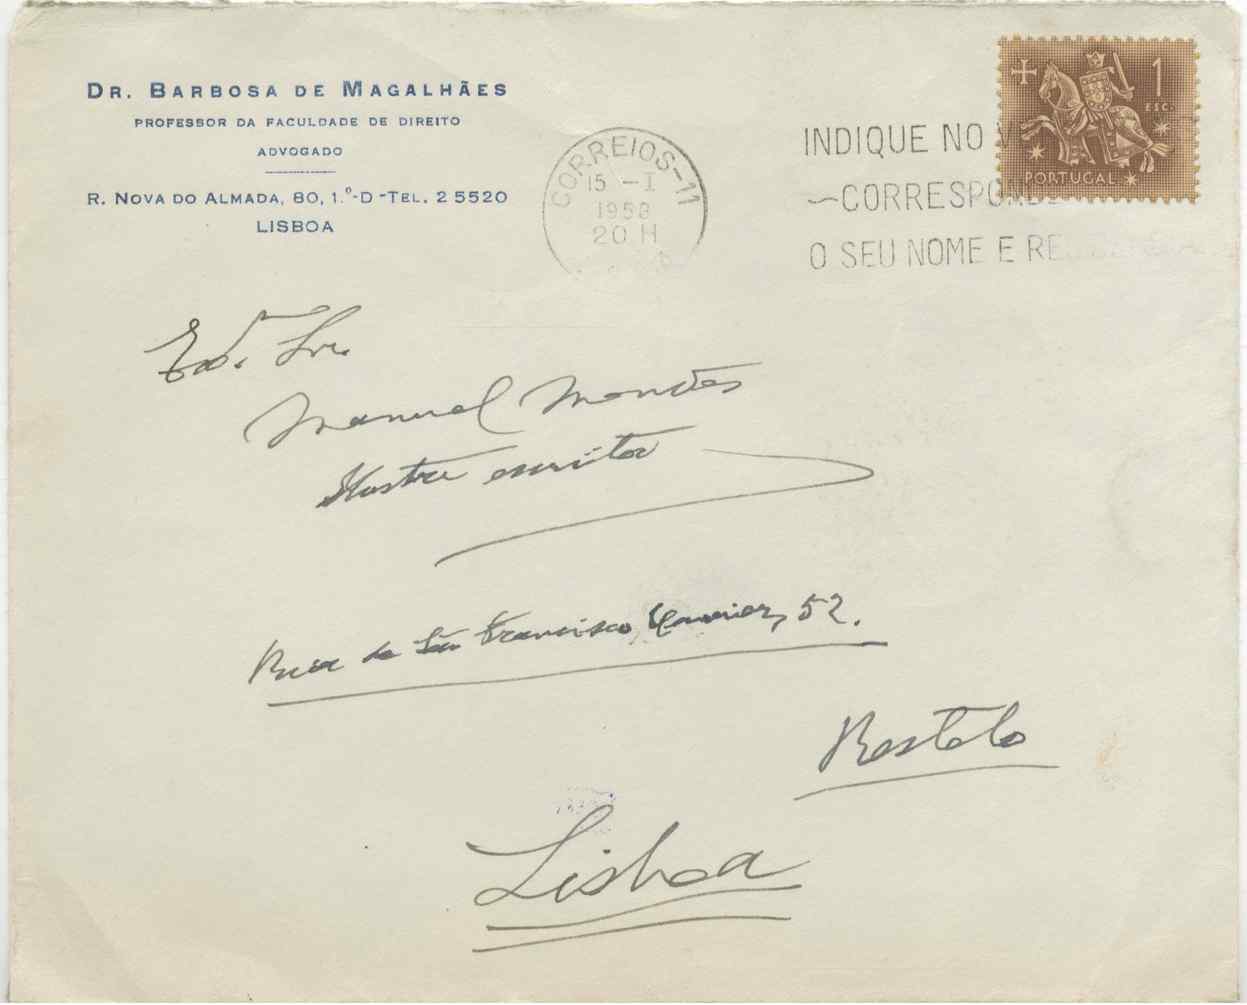 DR. BARBOSA DE MAGALHÃES
PROFESSOR DA FACULDADE DE DIREITO
ADVOGADO
R. NOVA DO ALMADA, 80, 1.º-D - TEL. 2 5520
LISBOA
CORREIOS-11
15 - I
20 H
INDIQUE NO
CORRESPOND
O SEU NOME E RE
1
ESC.
PORTUGAL
Exº. Snr.
Manuel Mendes
Ilustre escritor
Rua de São Francisco Xavier, 52.
Restelo
Lisboa